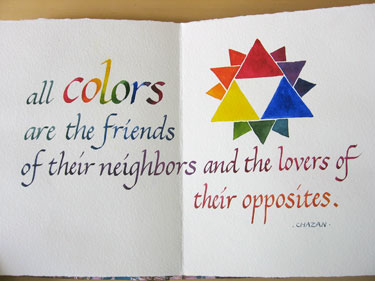 all colors
are the friends
of their neighbors and the lovers of
their opposites.
- CHAZAN -